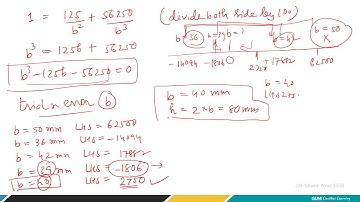 1 = 125/b² + 56250/b³ (divide both side by 100)
b³ = 125b + 56250
b³ - 125b - 56250 = 0
trial n error (b)
b = 50 mm LHS = 62500
b = 36 mm LHS = -14094
b = 42 mm LHS = 17882
b = 39 mm LHS = -1806 →
b = 40 LHS = 2750 ✓
b = 36 b = 39 b = ? b = 42 b = 50 ×
-14094 -1806 0 2750 17882 62500
b = 40
b = 40 mm
h = 2 × b = 80 mm